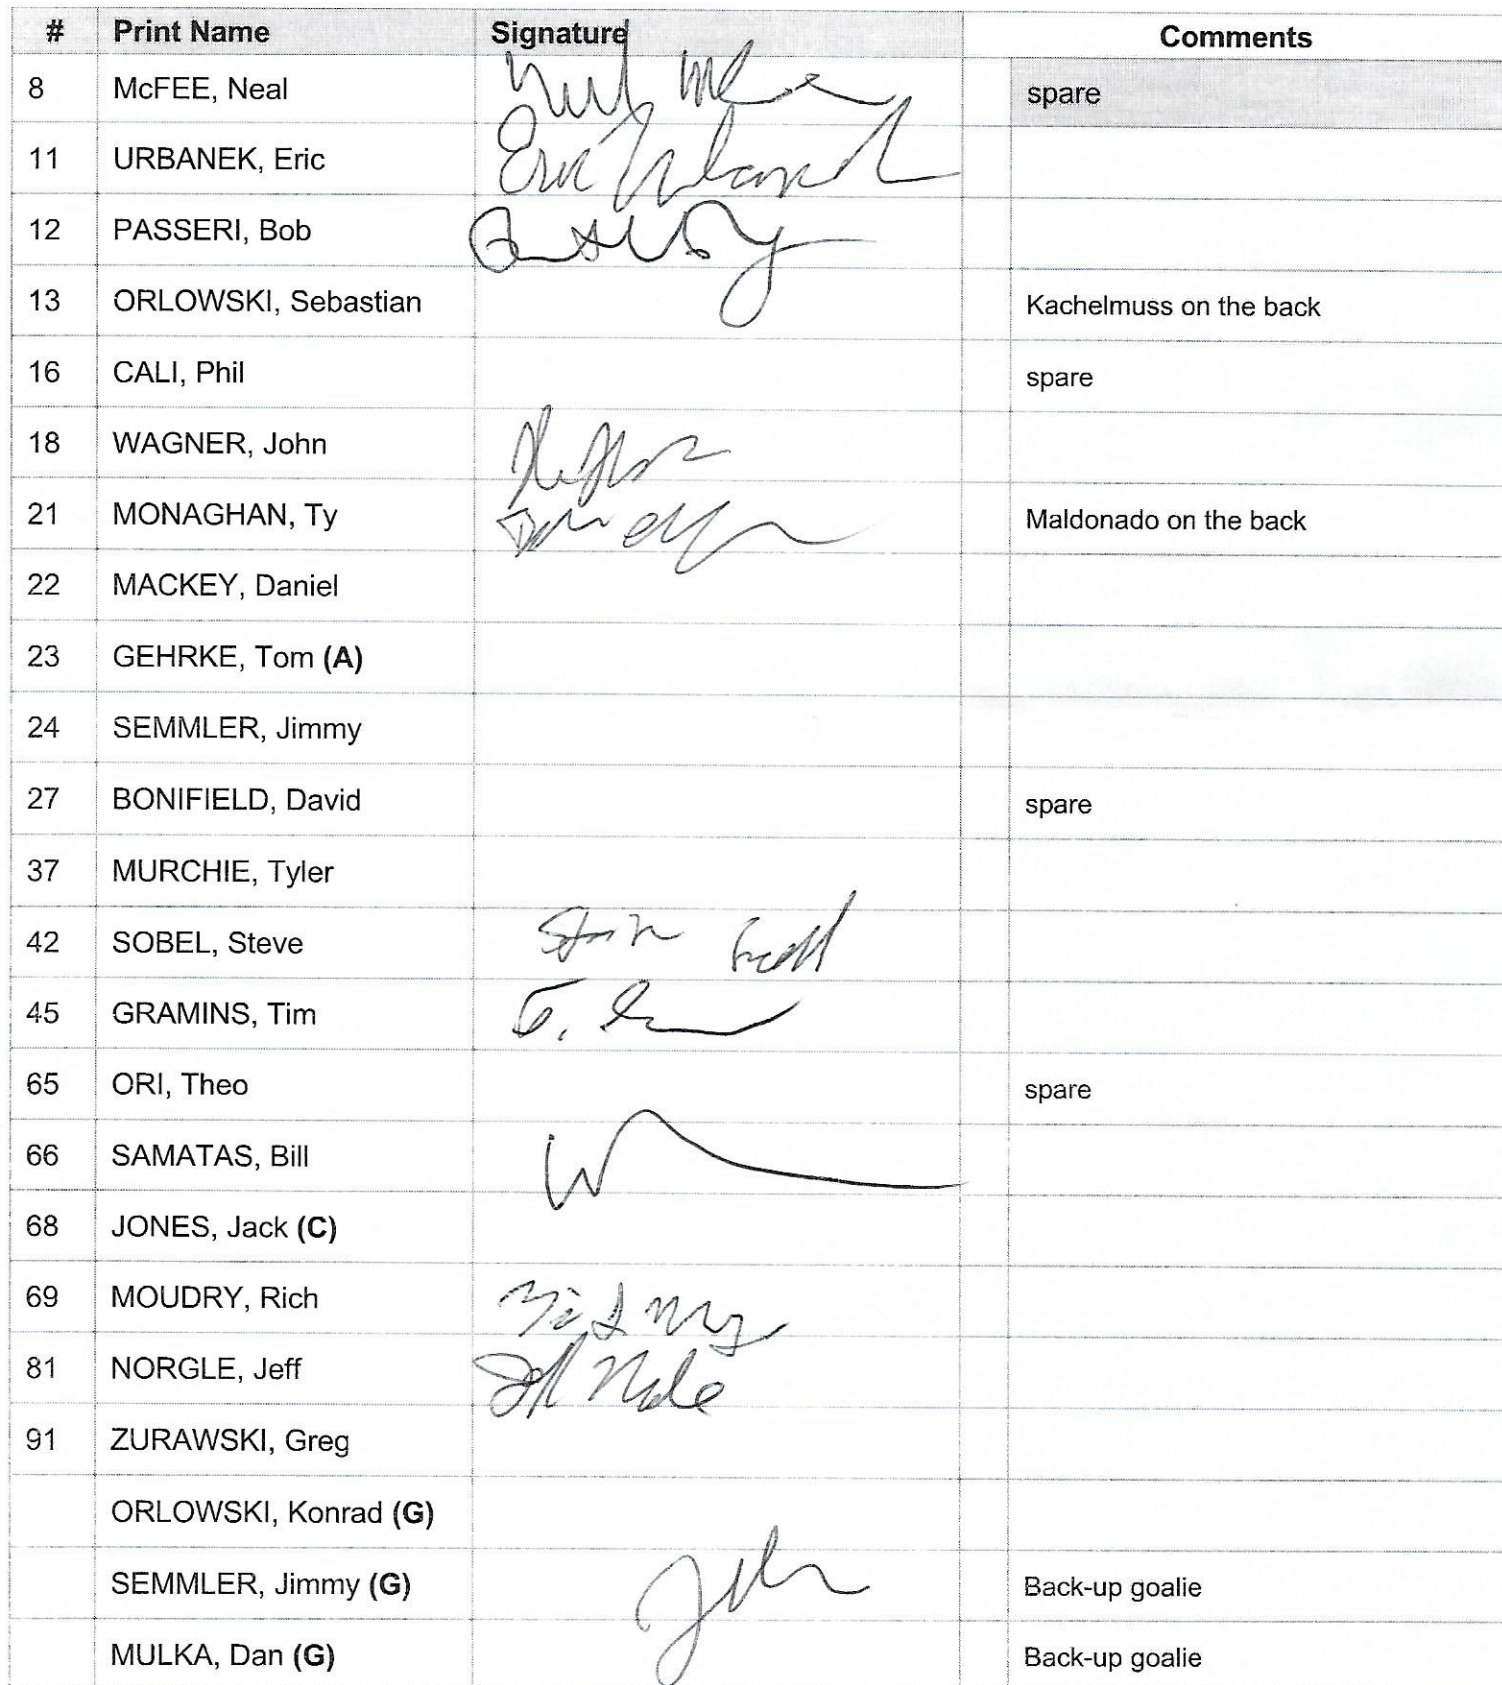 # Print Name Signature Comments
8 McFEE, Neal spare
11 URBANEK, Eric Eric Urbanek
12 PASSERI, Bob
13 ORLOWSKI, Sebastian Kachelmuss on the back
16 CALI, Phil spare
18 WAGNER, John
21 MONAGHAN, Ty Maldonado on the back
22 MACKEY, Daniel
23 GEHRKE, Tom (A)
24 SEMMLER, Jimmy
27 BONIFIELD, David spare
37 MURCHIE, Tyler
42 SOBEL, Steve
45 GRAMINS, Tim
65 ORI, Theo spare
66 SAMATAS, Bill
68 JONES, Jack (C)
69 MOUDRY, Rich
81 NORGLE, Jeff
91 ZURAWSKI, Greg
ORLOWSKI, Konrad (G)
SEMMLER, Jimmy (G) Back-up goalie
MULKA, Dan (G) Back-up goalie